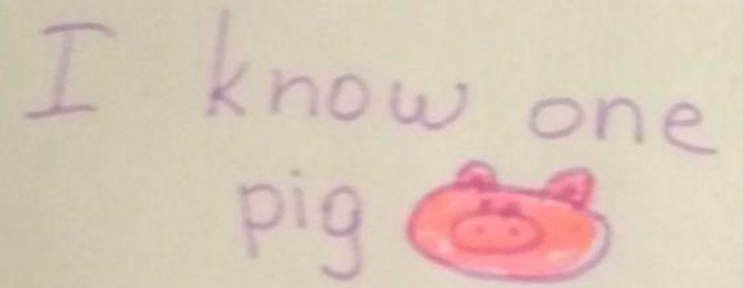 I know one
pig